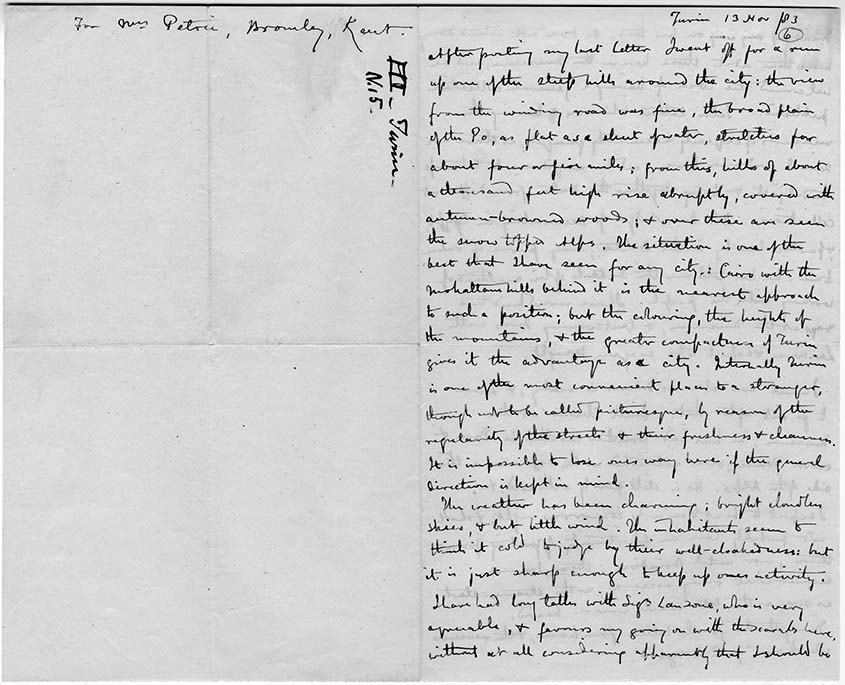 For Mrs Petrie, Bromley, Kent.
III – Turin –
N.15.
Turin 13 Nov /83
6
After posting my last letter I went off for a run
up one of the steep hills around the city: the view
from the winding road was fine, the broad plain
of the Po, as flat as a sheet of water, stretches for
about four or five miles; from this, hills of about
a thousand feet high rise abruptly, covered with
autumn-browned woods; & over these are seen
the snow topped Alps. The situation is one of the
best that I have seen for any city: Cairo with the
Mokattam hills behind it is the nearest approach
to such a position; but the colouring, the height of
the mountains, & the greater compactness of Turin
gives it the advantage as a city. Internally Turin
is one of the most convenient places to a stranger,
though not to be called picturesque, by reason of the
regularity of the streets & their freshness & cleanness.
It is impossible to lose ones way here if the general
direction is kept in mind.
The weather has been charming; bright cloudless
skies, & but little wind. The inhabitants seem to
think it cold to judge by their well-cloakedness: but
it is just sharp enough to keep up ones activity.
I have had long talks with Sigr Lanzone, who is very
agreeable, & favours my going on with the scarabs here,
without at all considering apparently that I should be